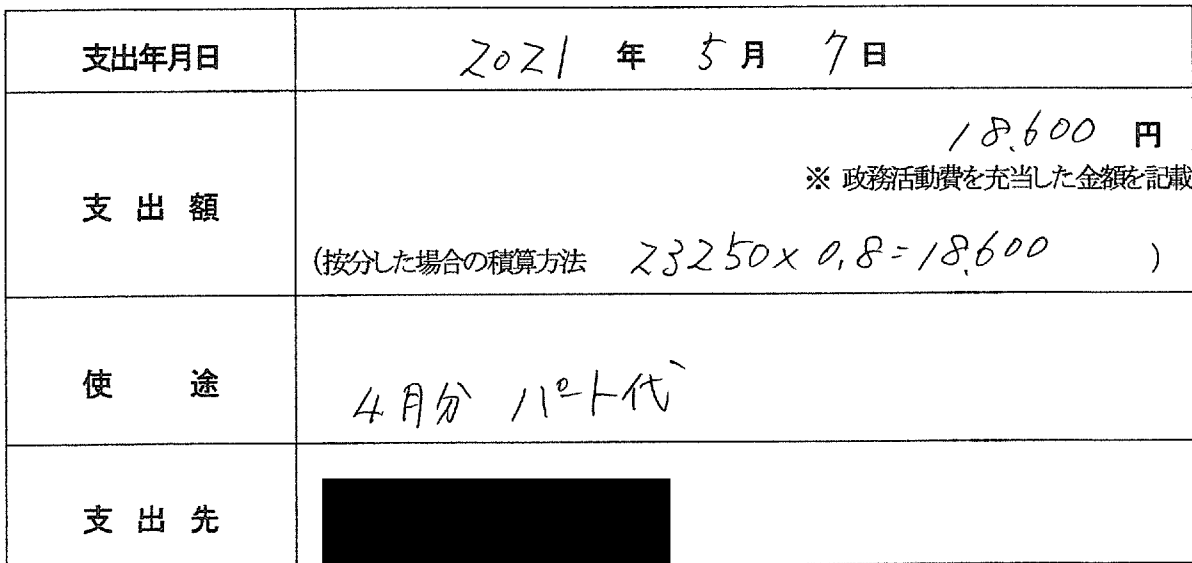 支出年月日 2021 年 5月 7日
支出額
18.600 円
※ 政務活動費を充当した金額を記載
(按分した場合の積算方法 23250×0.8=18.600 )
使途 4月分 パート代
支出先